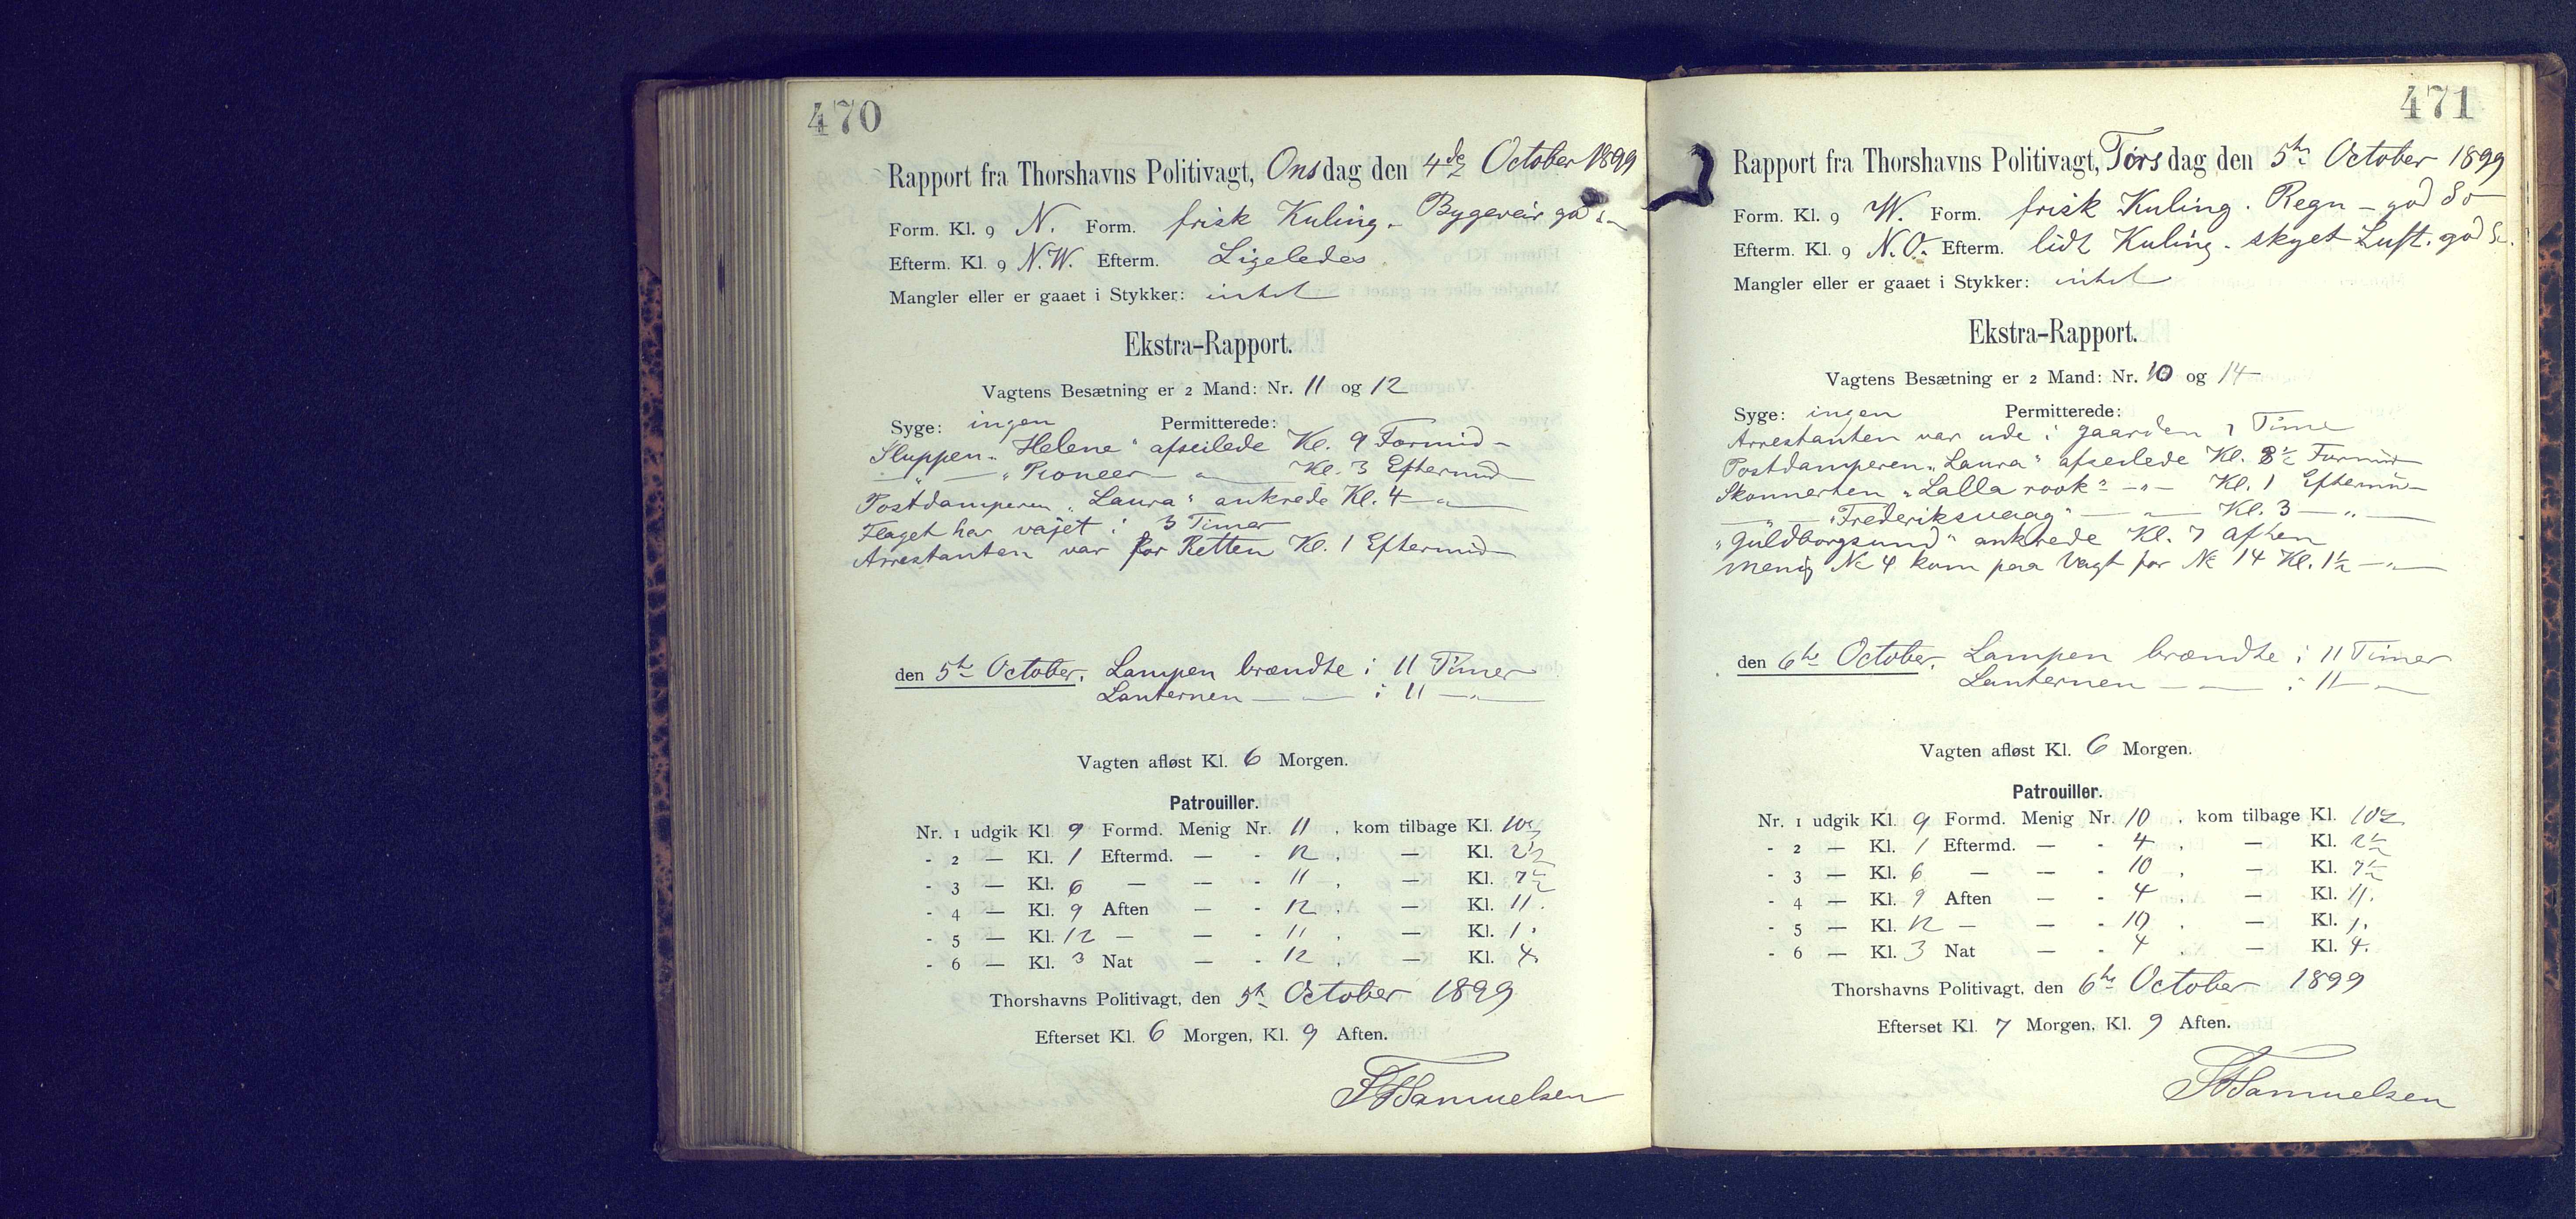 470
Rapport fra Thorshavns Politivagt, Onsdag den 4de October 1899
Form. Kl. 9 N. Form. frisk Kuling. Bygeveir god
Efterm. Kl. 9 N.W. Efterm. Ligeledes.
Mangler eller er gaaet i Stykker: intet
Ekstra-Rapport.
Vagtens Besætning er 2 Mand: Nr. 11 og 12
Syge: ingen Permitterede:
Sluppen „Helene“ afseilede Kl. 9 Formid—
—„— „Pioneer — „ — Kl. 3 Eftermid—
Postdamperen „Laura“ ankrede Kl. 4 —„—
Flaget har vajet i 3 Timer
Arrestanten var for Retten Kl. 1 Eftermid—
den 5te October. Lampen brændte i 11 Timer
Lanternen — „ — i 11 —„—
Vagten afløst Kl. 6 Morgen.
Patrouiller.
Nr. 1 udgik Kl. 9 Formd. Menig Nr. 11, kom tilbage Kl. 10½
- 2 — Kl. 1 Eftermd. — - 12, — Kl. 2½
- 3 — Kl. 6 — — - 11, — Kl. 7½
- 4 — Kl. 9 Aften — - 12, — Kl. 11.
- 5 — Kl. 12 — — - 11, — Kl. 1.
- 6 — Kl. 3 Nat — - 12, — Kl. 4.
Thorshavns Politivagt, den 5te October 1899
Efterset Kl. 6 Morgen, Kl. 9 Aften.
Samuelsen
471
Rapport fra Thorshavns Politivagt, Torsdag den 5te October 1899
Form. Kl. 9 W. Form. frisk Kuling. Regn — god So
Efterm. Kl. 9 N.O. Efterm. lidt Kuling. skyet Luft. god
Mangler eller er gaaet i Stykker: intet
Ekstra-Rapport.
Vagtens Besætning er 2 Mand: Nr. 10 og 14
Syge: ingen Permitterede:
Arrestanten var ude i Gaarden 1 Time
Postdamperen „Laura“ afseilede Kl. 8½ Formid—
Skonnerten „Lalla rook“ —„— Kl. 1 Eftermid—
—„— „Frederiksvaag“ — „ — Kl. 3 —„—
„Guldborgsund“ ankrede Kl. 7 Aften
Menig No 4 kom paa Vagt for No 14 Kl. 1½ —„—
den 6te October. Lampen brændte i 11 Timer
Lanternen — „ — i 11 —„—
Vagten afløst Kl. 6 Morgen.
Patrouiller.
Nr. 1 udgik Kl. 9 Formd. Menig Nr. 10, kom tilbage Kl. 10½
- 2 — Kl. 1 Eftermd. — - 4, — Kl. 2½
- 3 — Kl. 6 — — - 10, — Kl. 7½
- 4 — Kl. 9 Aften — - 4, — Kl. 11.
- 5 — Kl. 12 — — - 10, — Kl. 1.
- 6 — Kl. 3 Nat — - 4, — Kl. 4.
Thorshavns Politivagt, den 6te October 1899
Efterset Kl. 7 Morgen, Kl. 9 Aften.
Samuelsen